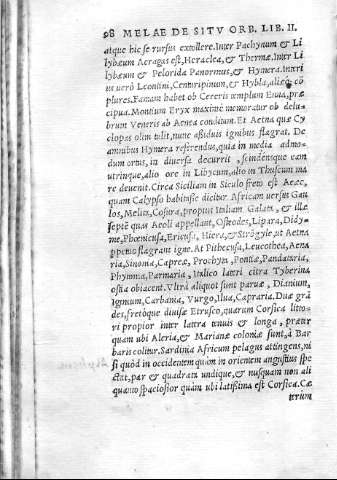 98 MELAE DE SITV ORB. LIB. II.
atque hic se rursus extollere. Inter Pachynum & Li
lybæum Acragas est, Heraclea, & Thermæ. Inter Li
lybæum & Pelorida Panormus, & Hymera. Interi
us uerò Leontini, Centuripinum, & Hybla, aliæq; cō
plures. Famam habet ob Cereris templum Enna, præ
cipua. Montium Eryx maximè memoratur ob delu-
brum Veneris ab Aenea conditum. Et Aetna quæ Cy
clopas olim tulit, nunc assiduis ignibus flagrat. De
amnibus Hymera referendus, quia in media admo-
dum ortus, in diuersa decurrit, scindensque con
utrinque, alio ore in Libycum, alio in Thuscum ma
re deuenit. Circa Siciliam in Siculo freto est Aeæe,
quam Calypso habitasse dicitur Africam uersus Gau
los, Melita, Cosura, propius Italiam Galata, & illæ
septē quas Aeoli appellant, Osteodes, Lipara, Didy-
me, Phœnicusa, Ericusa, Hiera, & Strōgyle ut Aetna
perpetuo flagrant igne. At Pithecusa, Leucothea, Aena
ria, Sinonia, Capreæ, Prochyta, Pontiæ, Pandataria,
Phymnia, Parmaria, Italico lateri citra Tyberina
ostia obiacent. Vltrà aliquot sunt paruæ, Dianium,
Iginium, Carbania, Vurgo, Ilua, Capraria. Duæ grā
des, fretóque diuisæ Etrusco, quarum Corsica litto-
ri propior inter latera tenuis & longa, præter
quam ubi Aleria, & Mariana coloniæ sunt, à Bar
baris colitur. Sardinia Africum pelagus attingens, ni
si quòd in occidentem quàm in orientem angustius spe
ctat, par & quadrata undique, & nusquam non ali
quanto spaciosior quàm ubi latissima est Corsica. Cæ
terum